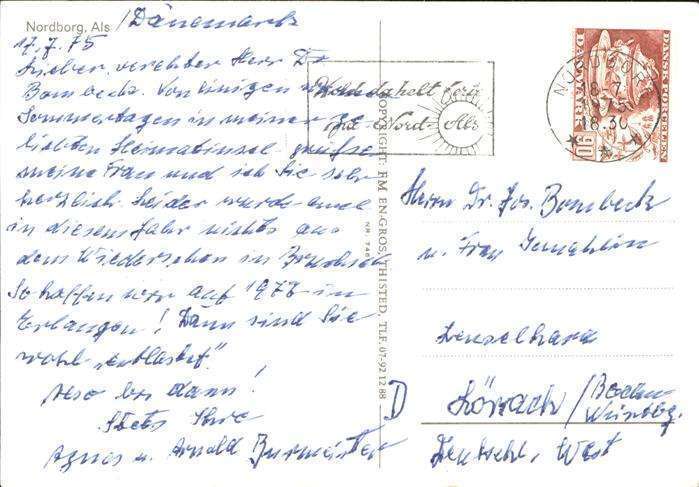 Nordborg, Als /Dänemark
17.7.75
Lieber, verehrter Herr Dr.
Bombeck. Von einigen
Sommertagen in meiner ge-
liebten Heimatinsel grüßen
meine Frau und ich Sie sehr
herzlich. Leider wurde auch
in diesem Jahr nichts aus
dem Wiedersehen in Bruchsal.
So hoffen wir auf 1977 in
Erlangen! Dann sind Sie
wohl „entlastet".
Also bis dann!
Stets Ihre
Agnes u. Arnold Burmeister
COPYRIGHT: FM EN-GROS, THISTED, TLF. 07-92 12 88
NR. 748
Hold da helt ferie
paa Nord-Als
NORDBORG
18.7.
1975
18.30
DANSK FORGÆVES
DANMARK
Herrn Dr. Jos. Bombeck
u. Frau Gemahlin
D
Lörrach /Baden
Württbg.
Deutschl. West